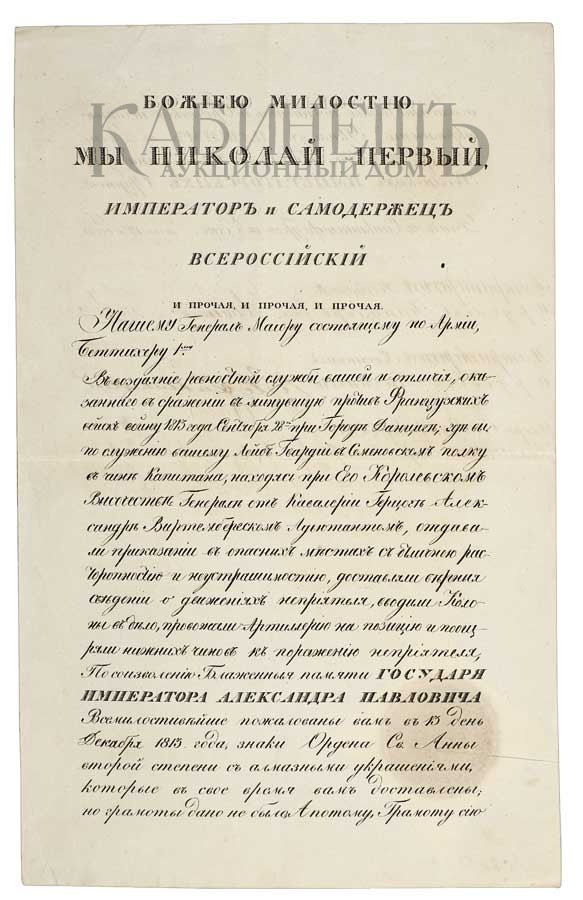 БОЖІЕЮ МИЛОСТІЮ
КАБИНЕТЪ
МЫ НИКОЛАЙ ПЕРВЫЙ,
АУКЦИОННЫЙ ДОМ
ИМПЕРАТОРЪ и САМОДЕРЖЕЦЪ
ВСЕРОССІЙСКІЙ
И ПРОЧАЯ, И ПРОЧАЯ, И ПРОЧАЯ.
Нашему Генералъ Маіору состоящему по Арміи,
Беттихеру 1му
Въ воздаяніе ревностной службы вашей и отличія, ока-
заннаго въ сраженіи въ минувшую противъ Французскихъ
войскъ войну 1813 года Сентября 28го при Городѣ Данцигѣ; гдѣ вы,
по служенію вашему Лейбъ Гвардіи въ Семеновскомъ полку
въ чинѣ Капитана, находясь при Его Королевскомъ
Высочествѣ Генералѣ отъ Кавалеріи Герцогѣ Алек-
сандрѣ Виртембергскомъ Адъютантомъ, отдава-
ли приказаніи въ опасныхъ мѣстахъ съ отличною рас-
торопностію и неустрашимостію, доставляли
свѣденіи о движеніяхъ непріятеля, вводили Коло-
ны въ дѣло, провожали Артиллерію на позицію и поощ-
ряли нижнихъ чиновъ къ пораженію непріятеля;
По соизволенію Блаженныя памяти ГОСУДАРЯ
ИМПЕРАТОРА АЛЕКСАНДРА ПАВЛОВИЧА
Всемилостивѣйше пожалованы вамъ въ 13 день
Декабря 1813 года, знаки Ордена Св. Анны
второй степени съ алмазными украшеніями,
которые въ свое время вамъ доставлены;
но грамоты дано не было. А потому, Грамоту сію